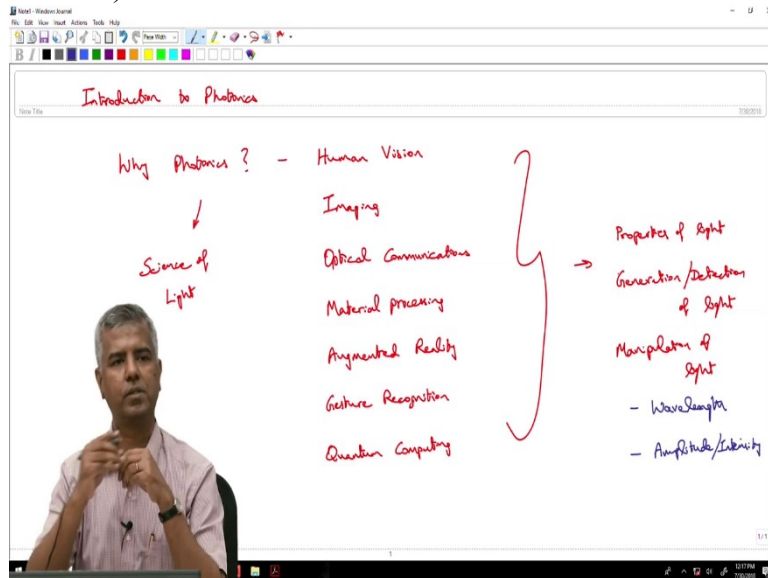 Note1 - Windows Journal
File Edit View Insert Actions Tools Help
Page Width
B I
Introduction to Photonics
Note Title
7/30/2018
Why Photonics? - Human Vision
Science of
Light
Imaging
Optical Communications
Material processing
Augmented Reality
Gesture Recognition
Quantum Computing
Properties of light
Generation/Detection
of light
Manipulation of
light
- Wavelength
- Amplitude/Intensity
1/1
1
12:17 PM
7/30/2018